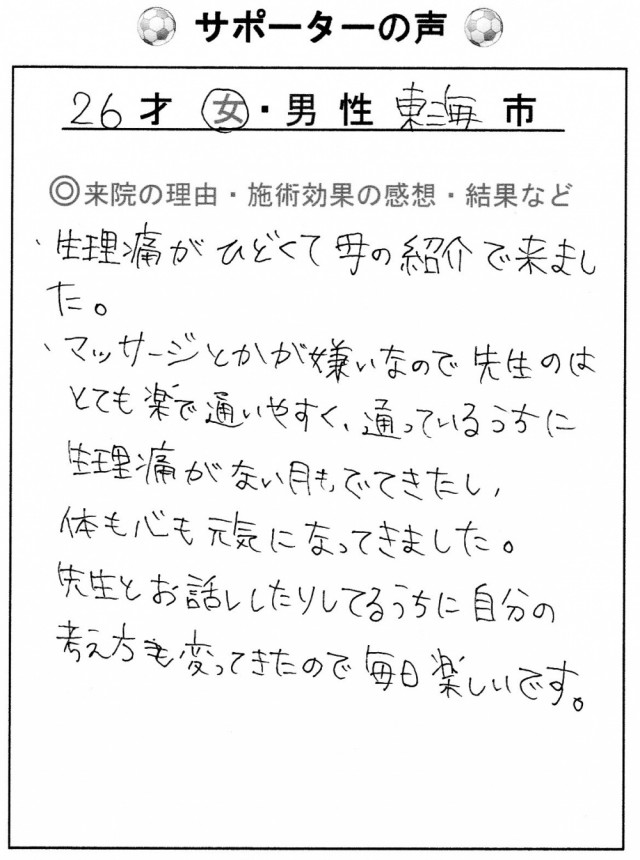 サポーターの声
26才 女・男性 東海市
◎来院の理由・施術効果の感想・結果など
、生理痛がひどくて母の紹介で来まし
た。
、マッサージとかが嫌いなので先生のは
とても楽で通いやすく、通っているうちに
生理痛がない月もでてきたし、
体も心も元気になってきました。
先生とお話ししたりしてるうちに自分の
考え方も変ってきたので毎日楽しいです。